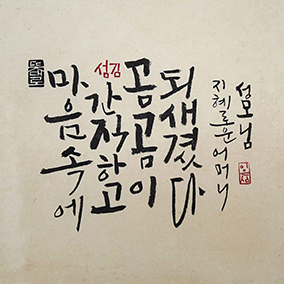 마음속에
섬김
간직하고
곰곰이
되새겼다
지혜로운 어머니
성모님